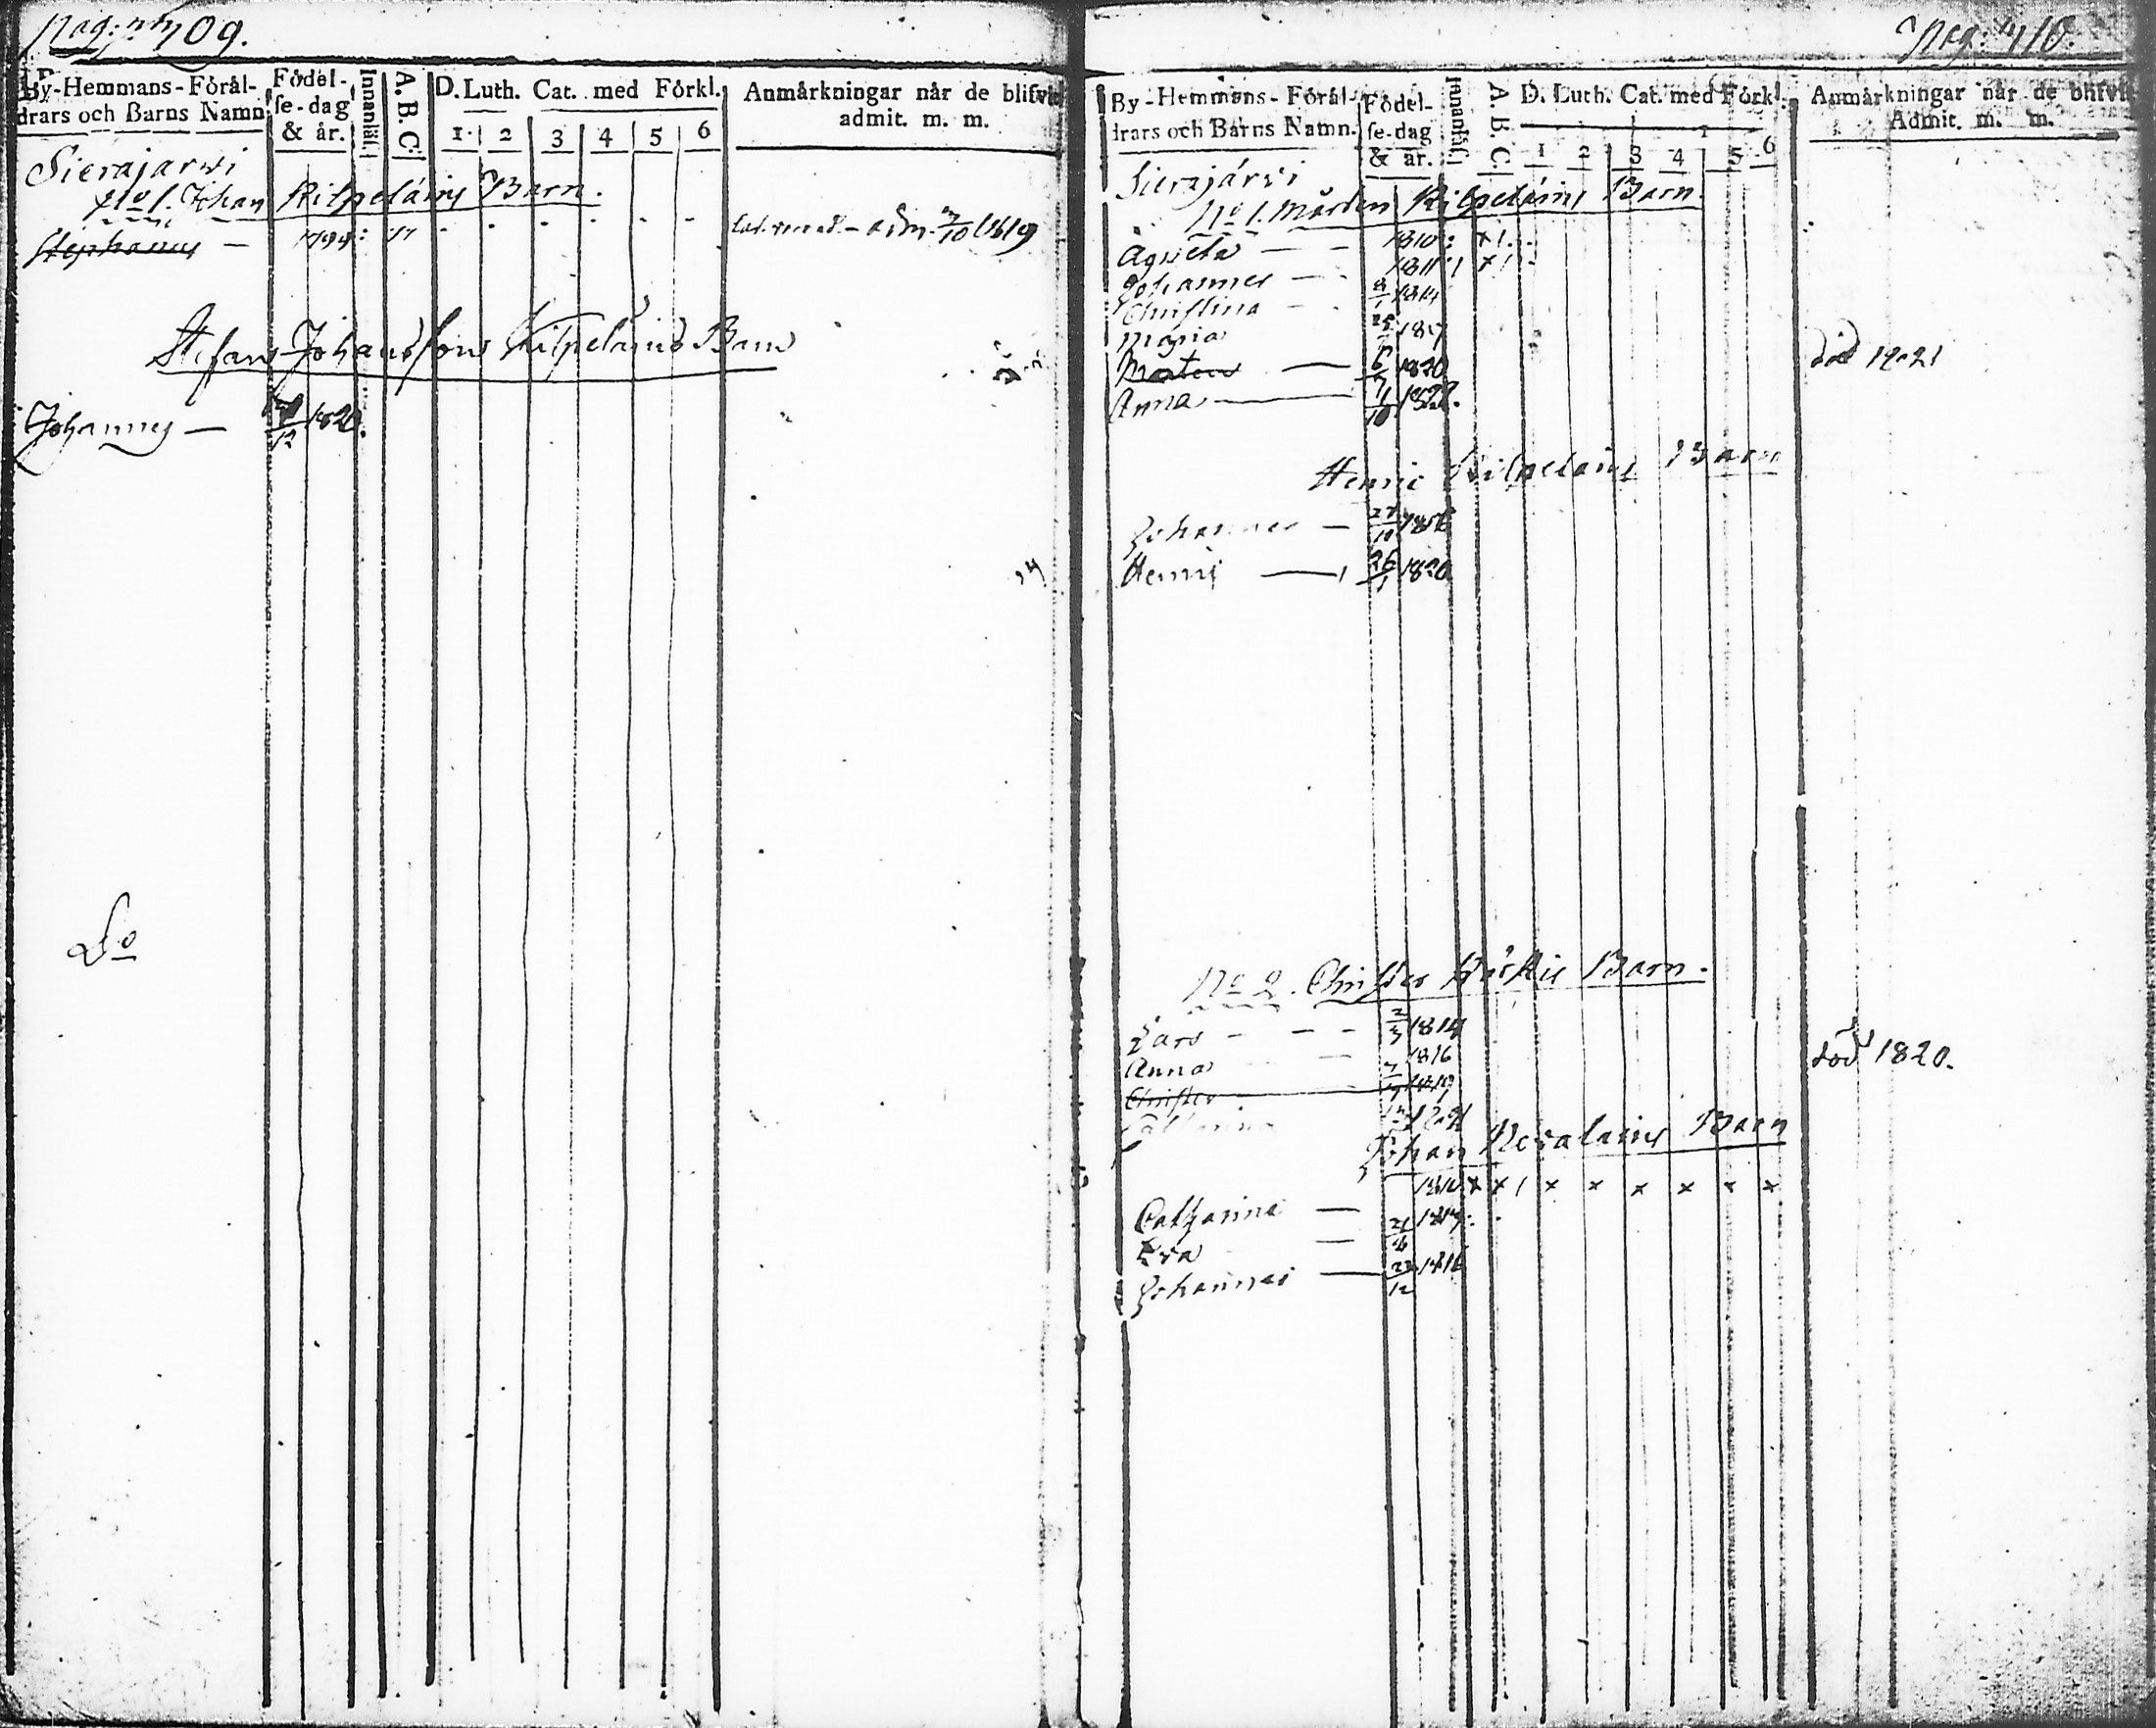 Pag: 409.
By-Hemmans-Förål-
drars och Barns Namn
Födel-
se-dag
& år.
Innanläs.
A. B. C.
D. Luth. Cat. med Förkl.
1. 2 3 4 5 6
Anmårkningar når de blifvit
admit. m. m.
Sierajärwi
No 1. Johan Kilpeläins Barn.
Stephanus — 1799:
adm. 1819
Stefans Johansons Kilpeläinds Barn
Johannes — 12 1820.
Do
Pag: 410.
By-Hemmans-Förål-
drars och Barns Namn.
Födel-
se-dag
& år.
Innanläs.
A. B. C.
D. Luth. Cat. med Förkl.
1 2 3 4 5 6
Anmårkningar når de blifvit
Admit. m. m.
Sierajärvi
No 1. Mårten Kilpeläins Barn.
Agneta — — 1810: x
Johannes — — 1811 x
Christina — — 1814
Maria 1817
Morten — 6 1820 död 1821
Anna — 7/10 1822.
Henric Kilpelains Barn
Johannes — 27/10
Henric — 26/1 1820
No 2. Christer Barn.
Lars — — — 2/3 1814
Anna — 1816
Christer 1819 död 1820.
Catharina
Johan Barn
Catharina — x x x x x x x x
Eva —
Johannes — 22/12 1816